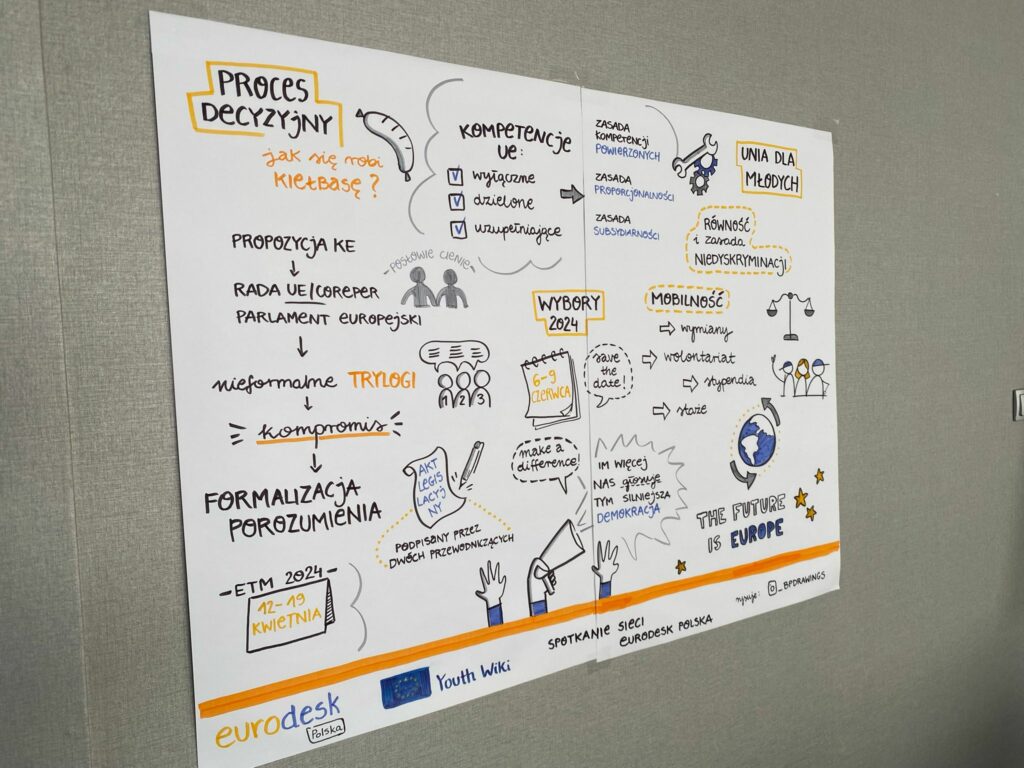 PROCES
DECYZYJNY
jak się robi
KIEŁBASĘ?
PROPOZYCJA KE
RADA UE/COREPER
PARLAMENT EUROPEJSKI
-POSŁOWIE CIENIE-
nieformalne TRYLOGI
1 2 3
kompromis
FORMALIZACJA
POROZUMIENIA
AKT
LEGIS
LACYJ
NY
PODPISANY PRZEZ
DWÓCH PRZEWODNICZĄCYCH
-ETM 2024-
12-19
KWIETNIA
KOMPETENCJE
UE:
wyłączne
dzielone
uzupełniające
ZASADA
KOMPETENCJI
POWIERZONYCH
ZASADA
PROPORCJONALNOŚCI
ZASADA
SUBSYDIARNOŚCI
WYBORY
2024
6-9
CZERWCA
save
the
date!
make a
difference!
IM WIĘCEJ
NAS głosuje
TYM SILNIEJSZA
DEMOKRACJA
UNIA DLA
MŁODYCH
RÓWNOŚĆ
i zasada
NIEDYSKRYMINACJI
MOBILNOŚĆ
wymiany
wolontariat
stypendia
staże
THE FUTURE
IS EUROPE
rysuje: _BPDRAWINGS
SPOTKANIE SIECI
EURODESK POLSKA
eurodesk
Polska
Youth Wiki